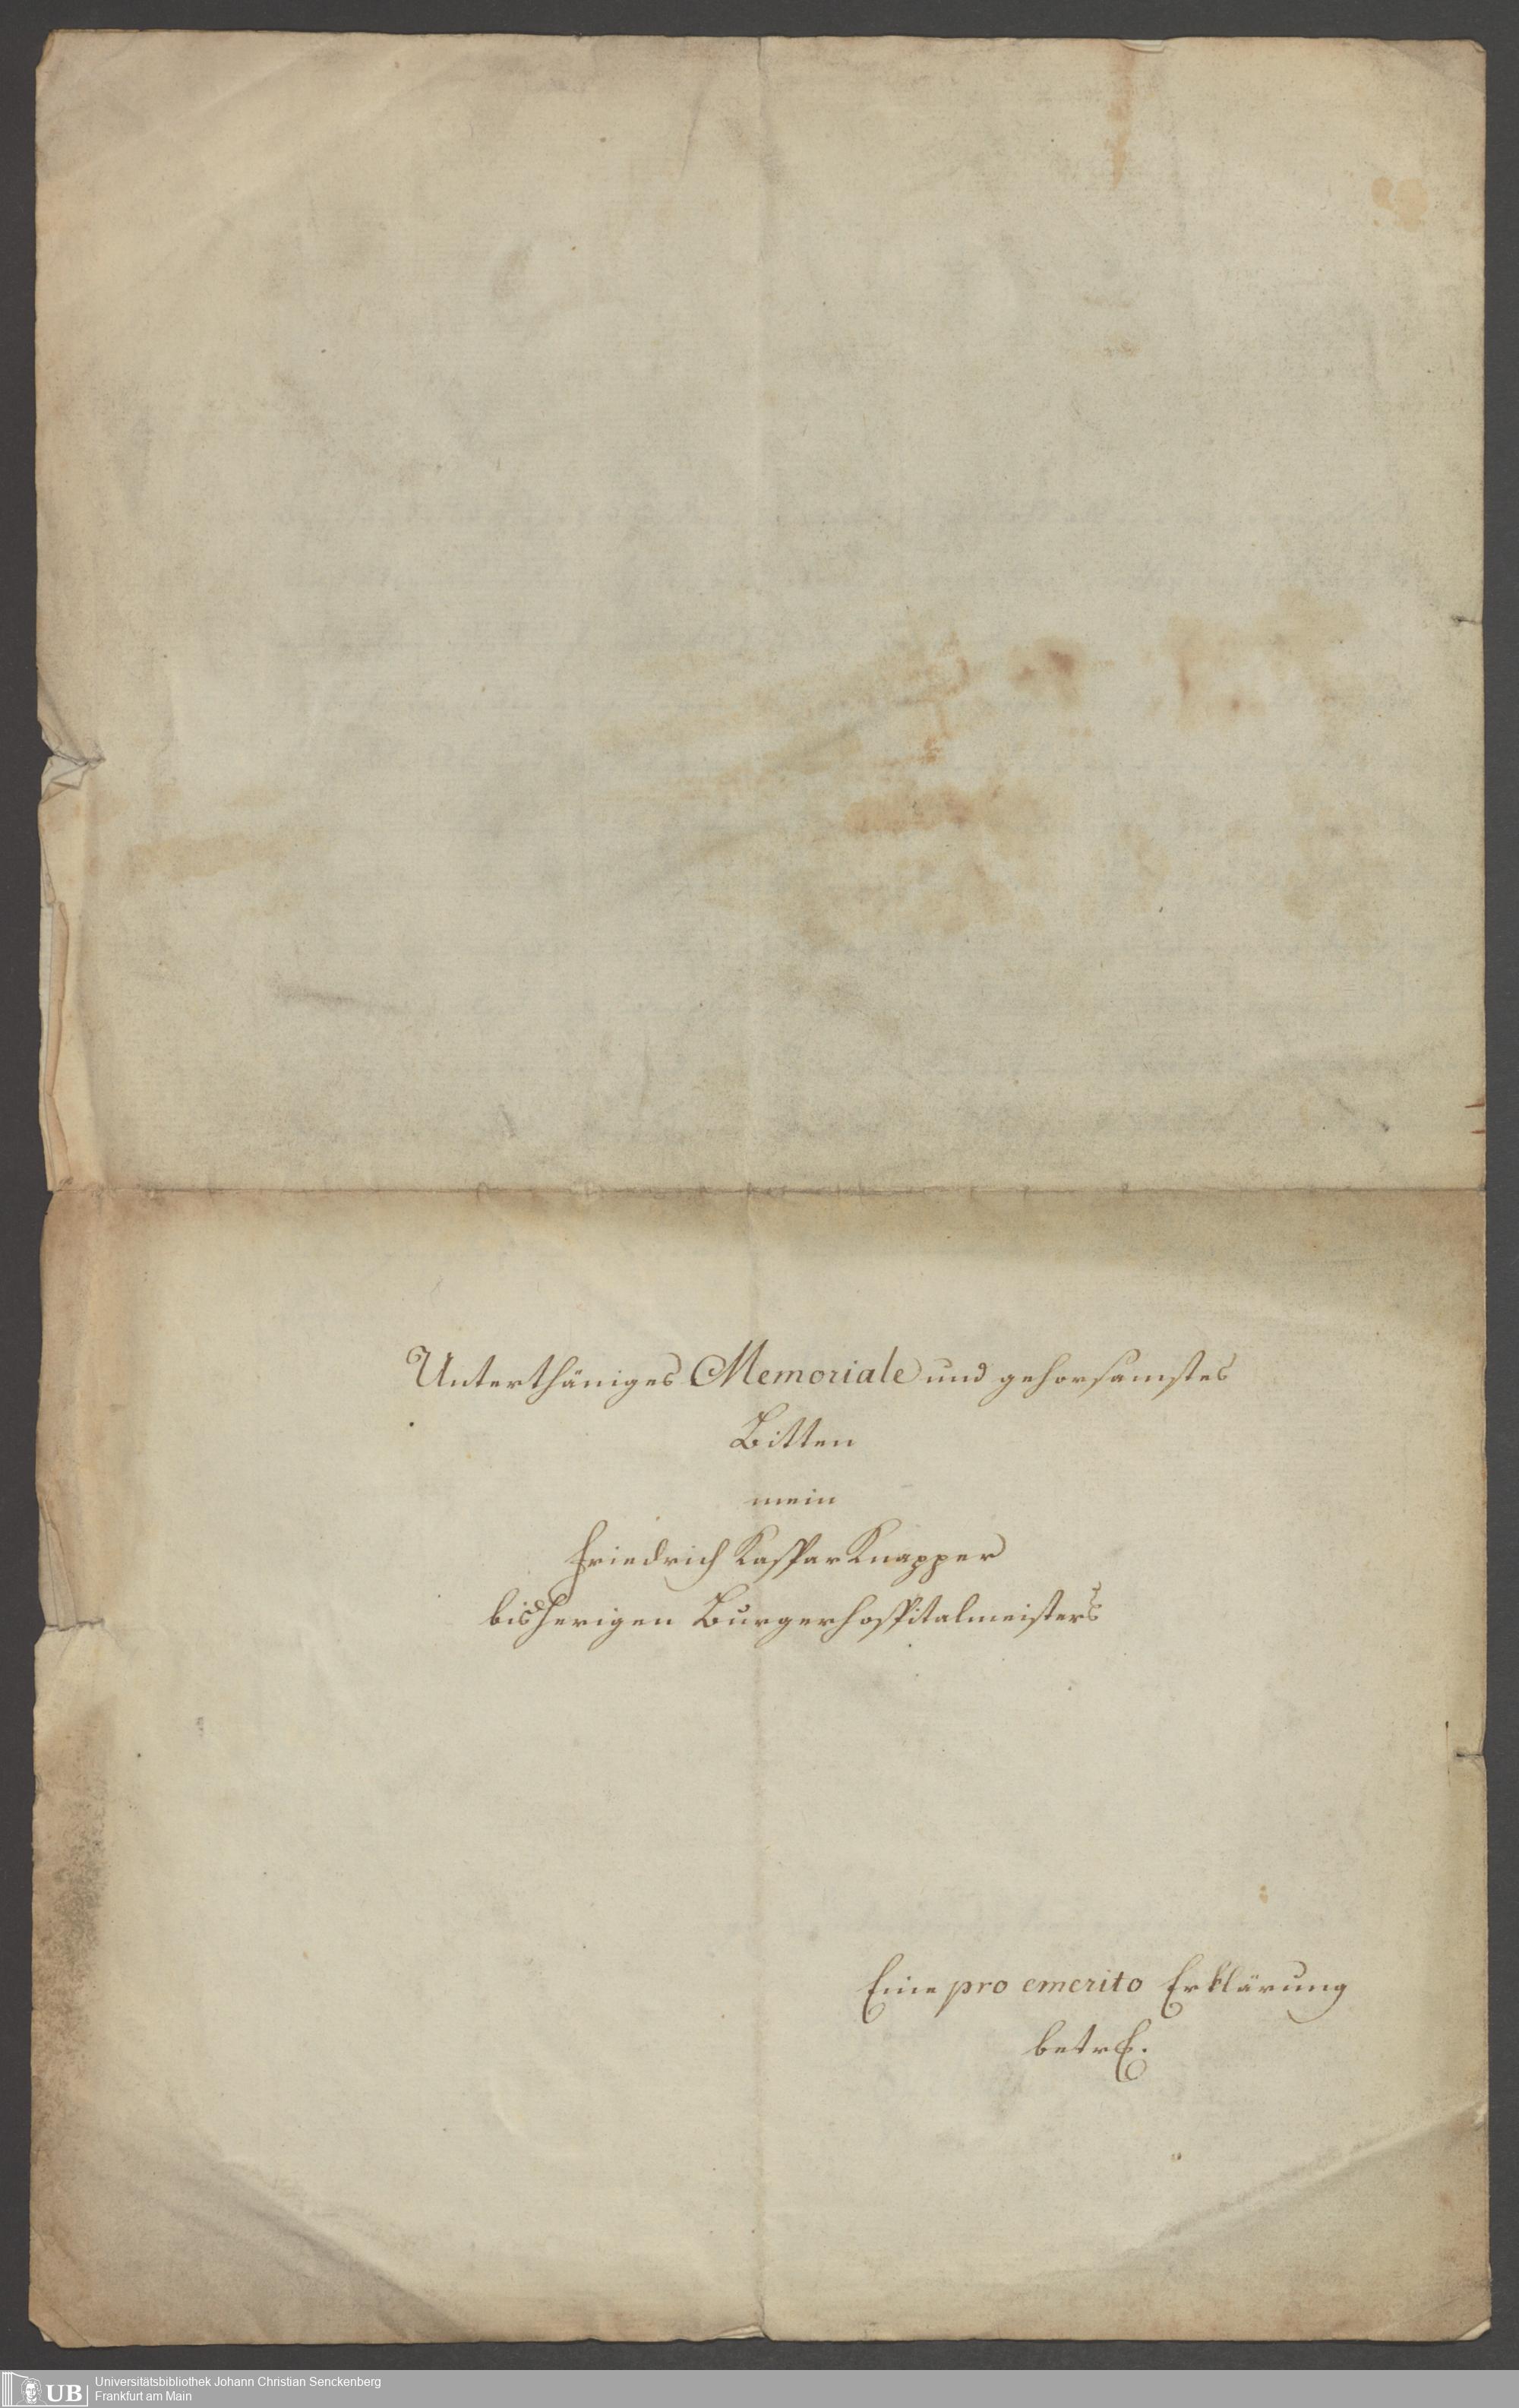 Unterthäniges Memoriale und gehorsamstes
Bitten
mein
Friedrich Kaspar Knapper
bisherigen Burgerhospitalmeisters
Eine pro emerito Erklärung
betrf.
UB
Universitätsbibliothek Johann Christian Senckenberg
Frankfurt am Main